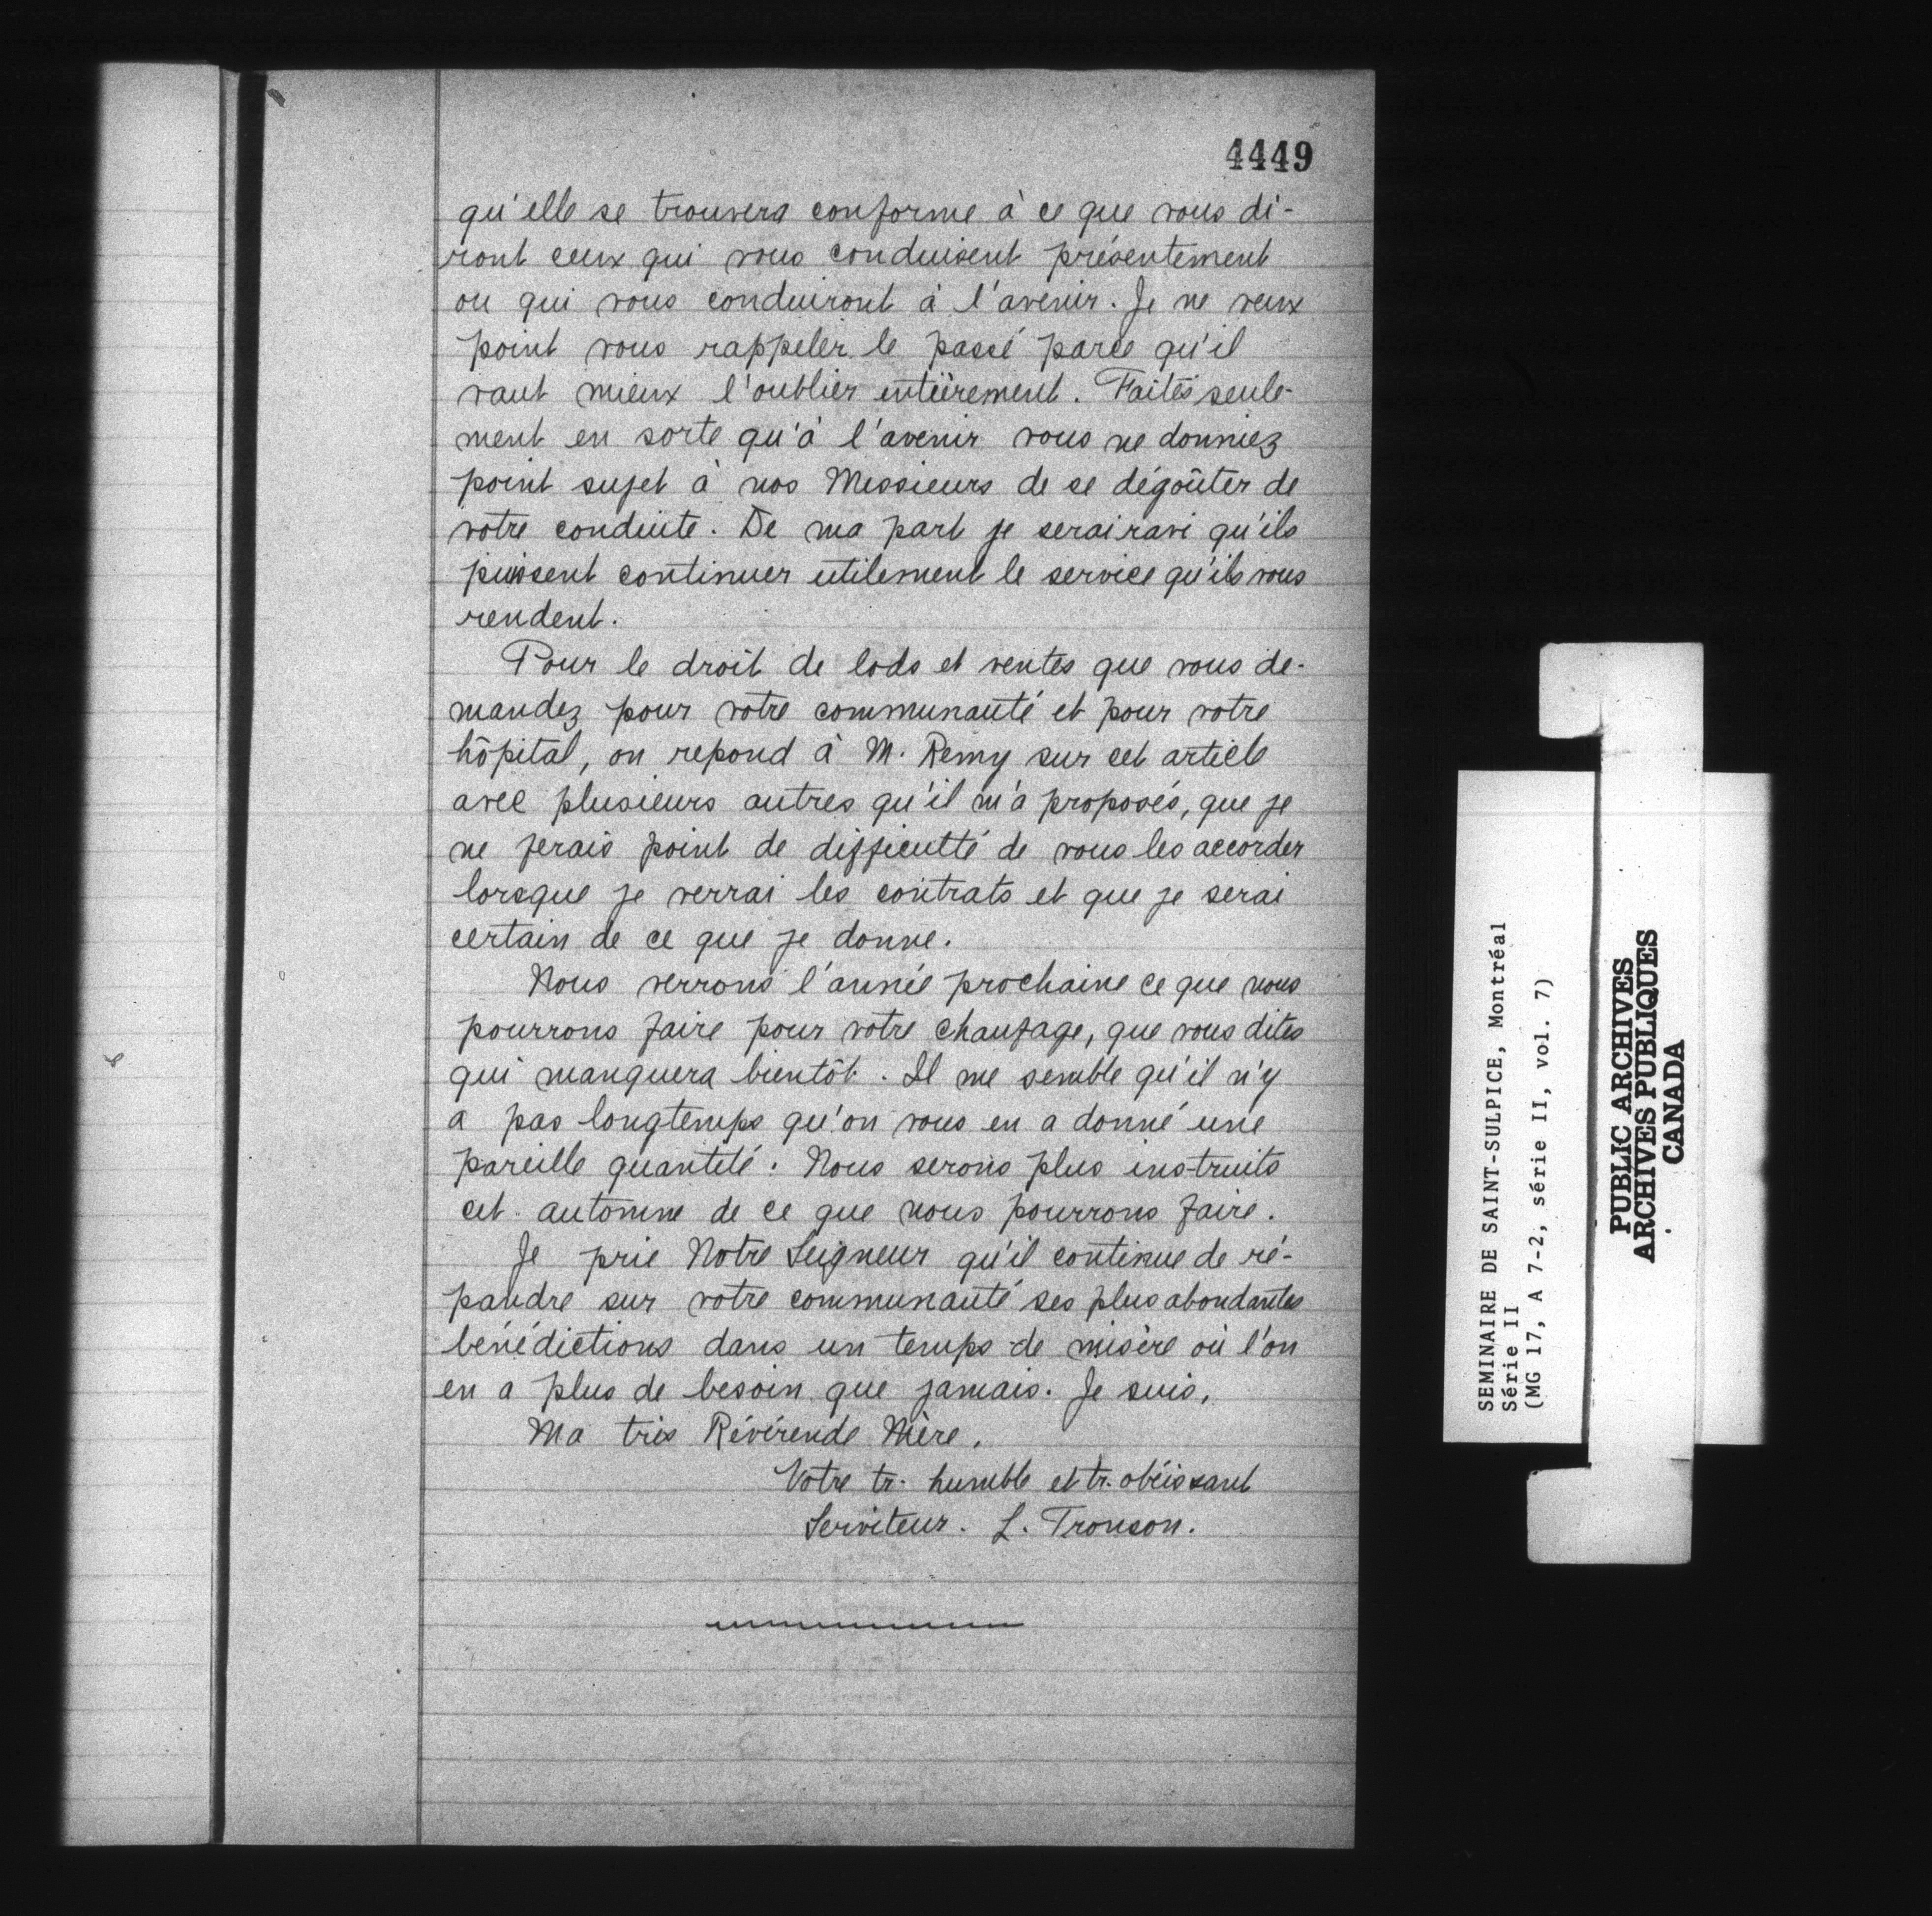 4449
qu'elle se trouvera conforme à ce que vous di-
ront ceux qui vous conduisent présentement
ou qui vous conduiront à l'avenir. Je ne veux
point vous rappeler le passé parce qu'il
vaut mieux l'oublier entièrement. Faites seule-
ment en sorte qu'à l'avenir vous ne donniez
point sujet à nos Messieurs de se dégoûter de
votre conduite. De ma part je serai ravi qu'ils
puissent continuer utilement le service qu'ils vous
rendent.
Pour le droit de lods et ventes que vous de-
mandez pour votre communauté et pour votre
hôpital, on repond à M. Remy sur cet article
avec plusieurs autres qu'il m'a proposés, que je
ne ferais point de difficulté de vous les accorder
lorsque je verrai les contrats et que je serai
certain de ce que je donne.
Nous verrons l'année prochaine ce que nous
pourrons faire pour votre chaufage, que vous dites
qui manquera bientôt. Il me semble qu'il n'y
a pas longtemps qu'on vous en a donné une
pareille quantité. Nous serons plus instruits
cet automne de ce que nous pourrons faire.
Je prie Notre Seigneur qu'il continue de ré-
pandre sur votre communauté ses plus abondantes
bénédictions dans un temps de misère où l'on
en a plus de besoin que jamais. Je suis,
Ma très Révérende Mère,
Votre tr. humble et tr. obéissant
Serviteur. L. Tronson.
SEMINAIRE DE SAINT-SULPICE, Montréal
Série II
(MG 17, A 7-2, série II, vol. 7)
PUBLIC ARCHIVES
ARCHIVES PUBLIQUES
CANADA